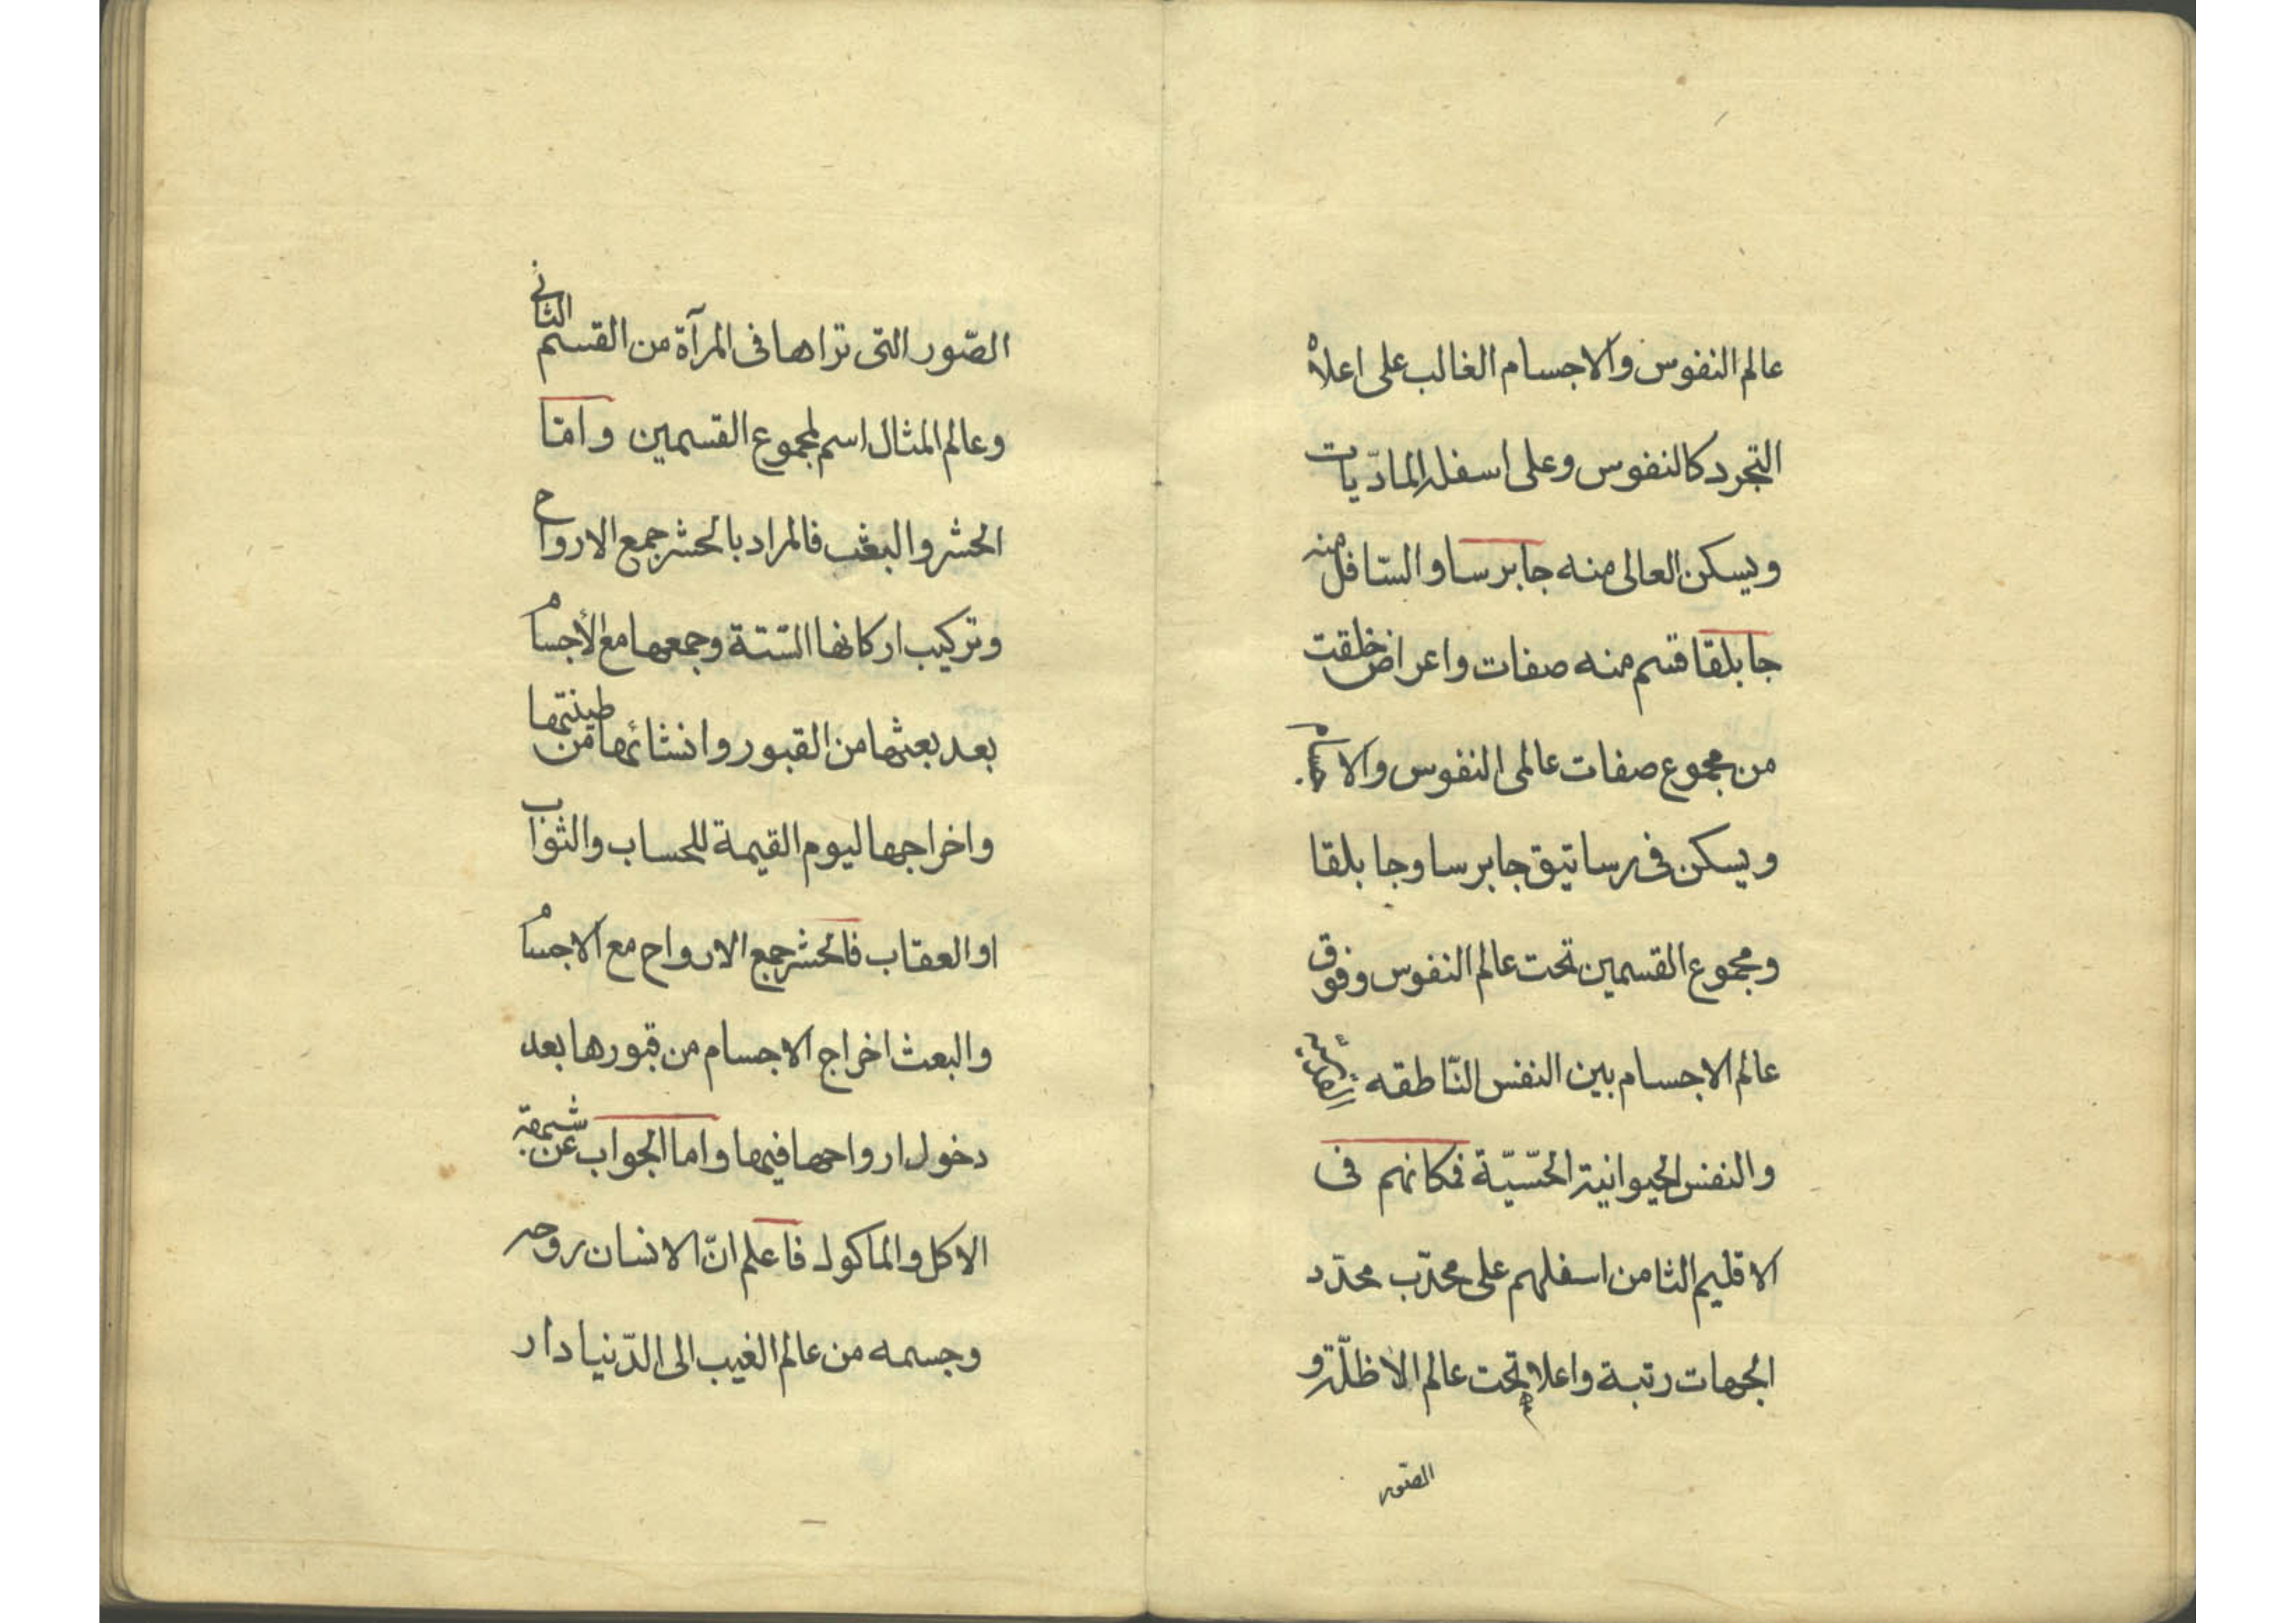 عالم النفوس والاجسام الغالب على اعلاه
التجرد كالنفوس وعلى اسفله الماديّات
ويسكن العالى منه جابرسا والسّافل منه
جابلقا قسم منه صفات واعراض خلقت
من مجموع صفات عالمى النفوس والاجسام
ويسكن فى رساتيق جابرسا وجابلقا
ومجموع القسمين تحت عالم النفوس وفوق
عالم الاجسام بين النفس النّاطقه
والنفس الحيوانية الحسّيّة فكانهم فى
الاقليم الثامن اسفلهم على محدّب محدّد
الجهات رتبة واعلاهم تحت عالم الاظلّة و
الصّور
الصّور التى تراها فى المرآة من القسم الثانى
وعالم المثال اسم لمجموع القسمين وامّا
الحشر والبعث فالمراد بالحشر جمع الارواح
وتركيب اركانها السّتة وجمعها مع الأجسام
بعد بعثها من القبور وانشائها من طينتها
واخراجها ليوم القيمة للحساب والثواب
او العقاب فالحشر جمع الارواح مع الاجسام
والبعث اخراج الاجسام من قبورها بعد
دخول ارواحها فيها واما الجواب عن شبهة
الاكل والماكول فاعلم انّ الانسان روحه
وجسمه من عالم الغيب الى الدّنيا دار